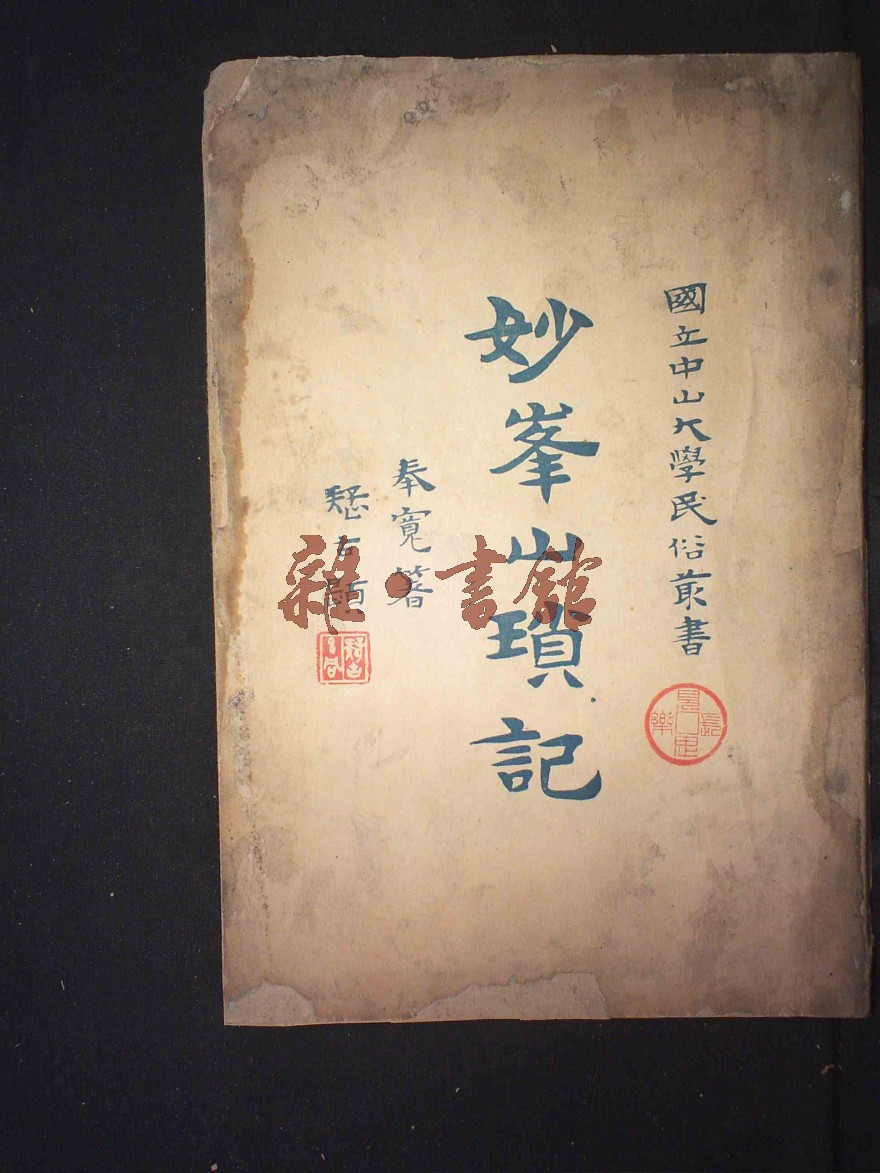 國立中山大學民俗叢書
妙峯山瑣記
奉寬著
雜·書館